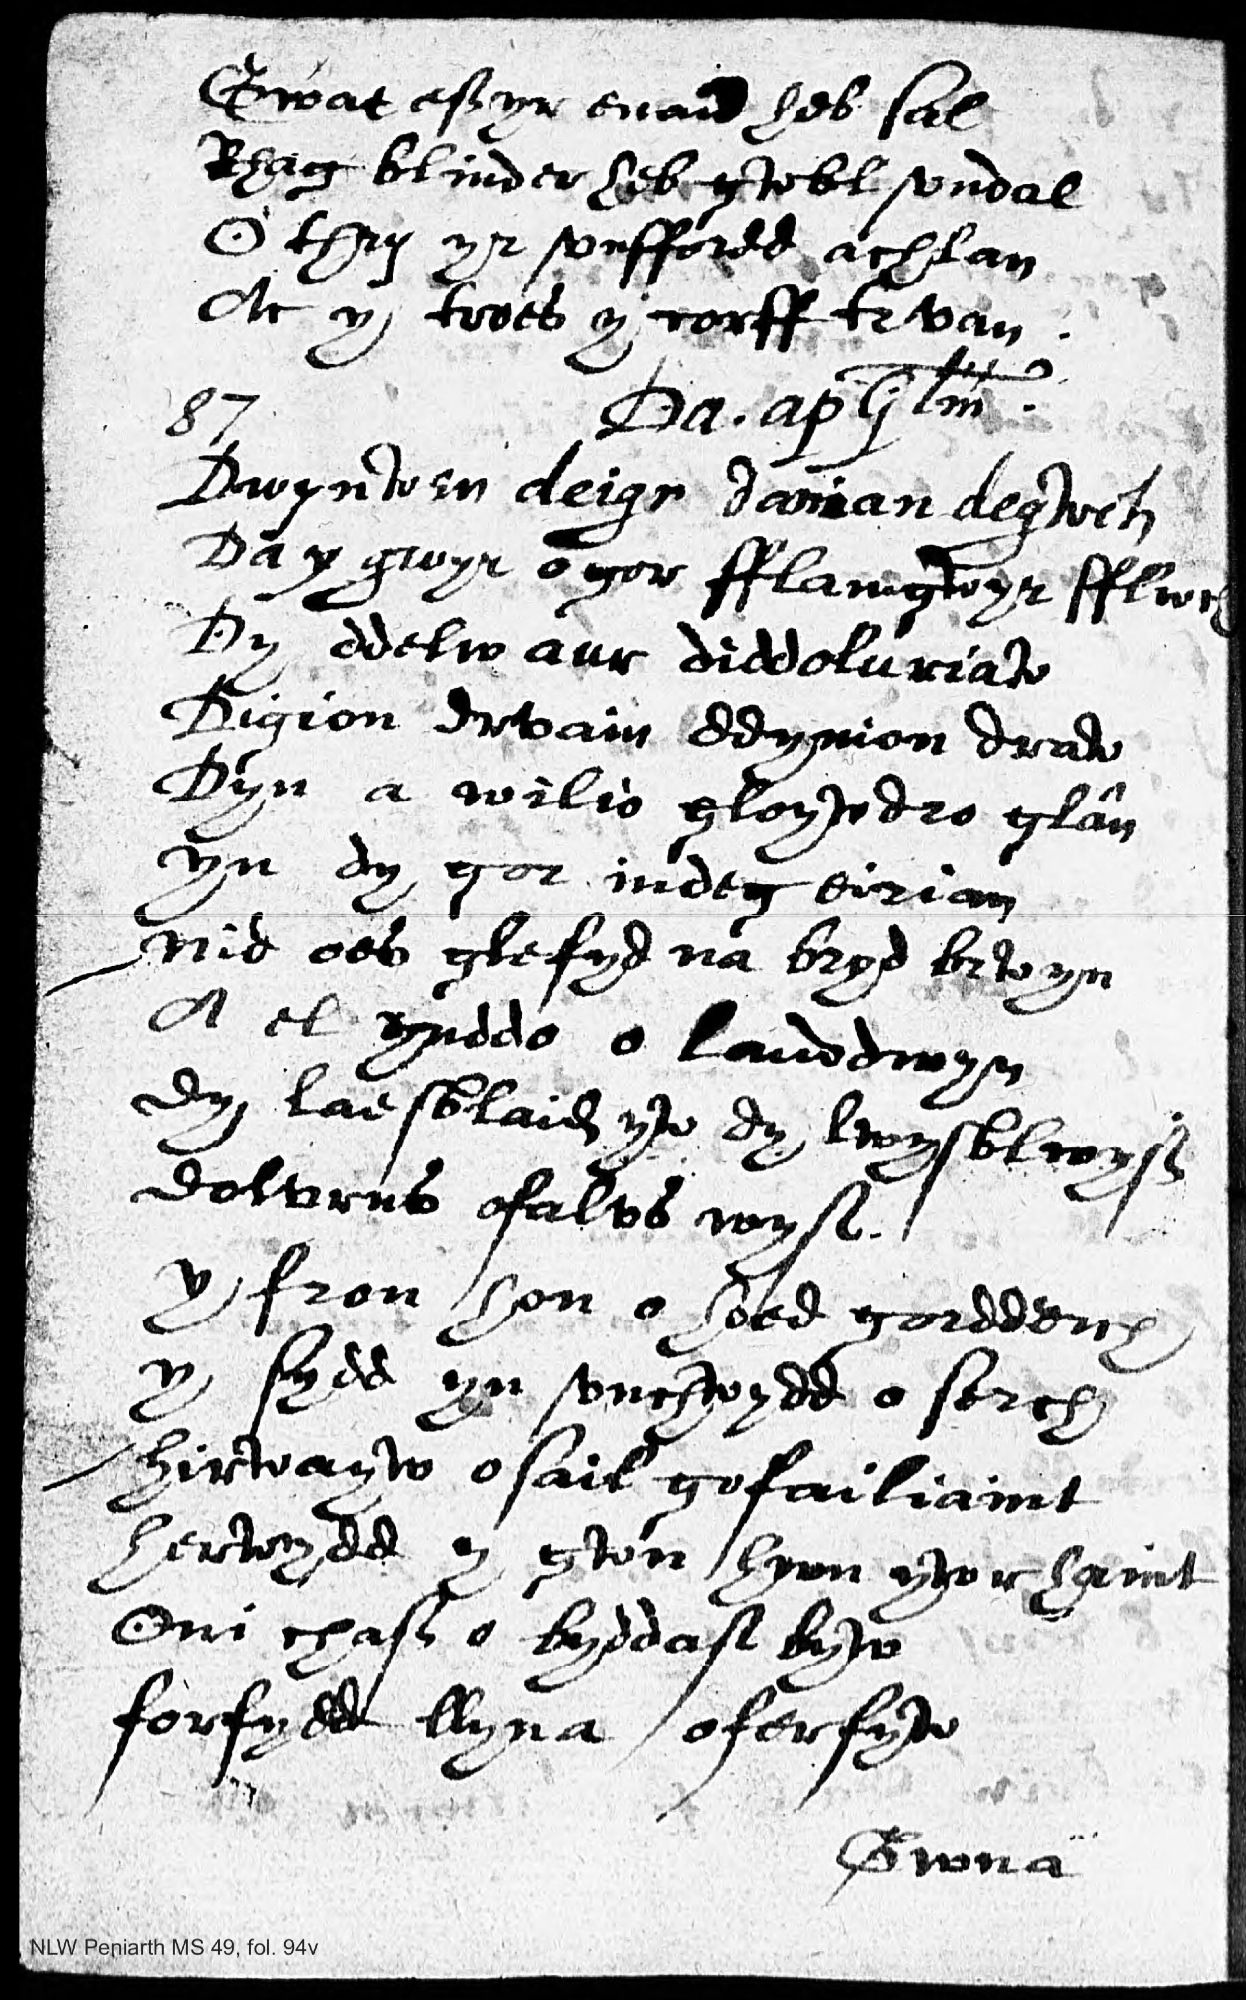 Gwae esyr enaid heb sal
Rhag blinder heb gwbl sondal
O thry yr unffordd achlan
Ac y troes y corff truan.
87 Da. ap Glm.
Dwynwen deigr daman degwch
Da y gwyr o gor fflamgwyr fflwch
Dy ddelw aur diddoluriaw
Digion druain ddynion draw
Dyn a wilio gloywdro glân
yn dy gor indeg eirian
nid oes glefyd na bryd brwyn
A el ynddo o landdwyn
dy laesblaid yw dy lwysblwyf
dolurus ofalus wyf.
y fron hon o hoed gordderch
y sydd yn unchwydd o serch
hirwayw o sail gofailiaint
herwydd y gwnn hynn yw r haint
Oni chaf o byddaf byw
forfydd llyna oferfyw
Gwna
NLW Peniarth MS 49, fol. 94v